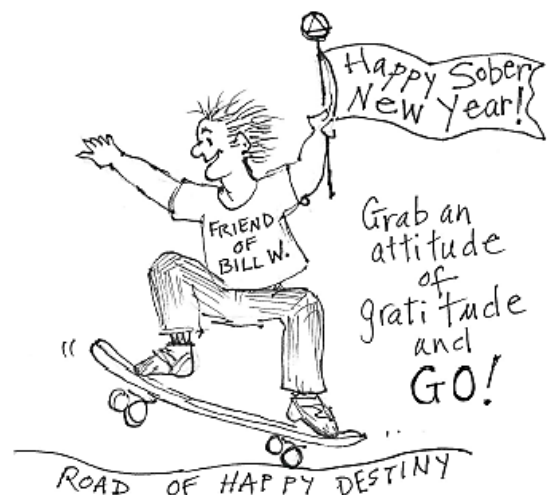 Happy Sober
New Year!
FRIEND
OF
BILL W.
Grab an
attitude
of
gratitude
and
GO!
ROAD OF HAPPY DESTINY